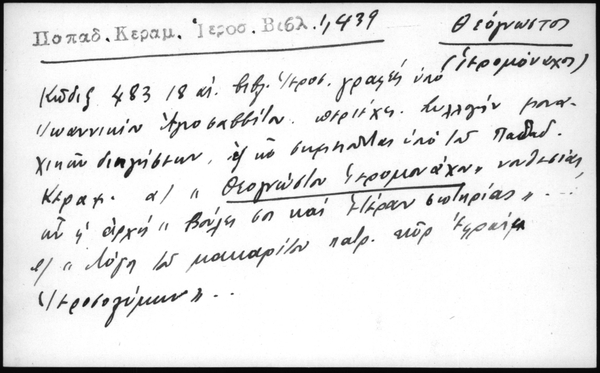 Παπαδ. Κεραμ. Ἱεροσ. Βιβλ. 1, 439
Θεόγνωστος
(Ἱερομόναχος)
Κῶδιξ 483 18 αἰ. βιβλ. Ἱεροσ. γραφεὶς ὑπὸ
Ἰωαννικίου Ἁγιοσαββίτου. περιέχει συλλογὴν μονα-
χικῶν διηγήσεων, ἐξ ὧν σημειοῦται ὑπὸ τοῦ Παπαδ.
Κεραμ. α) "Θεογνώστου Ἱερομονάχου" νουθεσίας
ὧν ἡ ἀρχή "Βούλει σοι καὶ ἑτέραν σωτηρίας"...
β) "Λόγοι τοῦ μακαρίτου πατρ. κῦρ Ἐφραὶμ
Ἱεροσολύμων"...